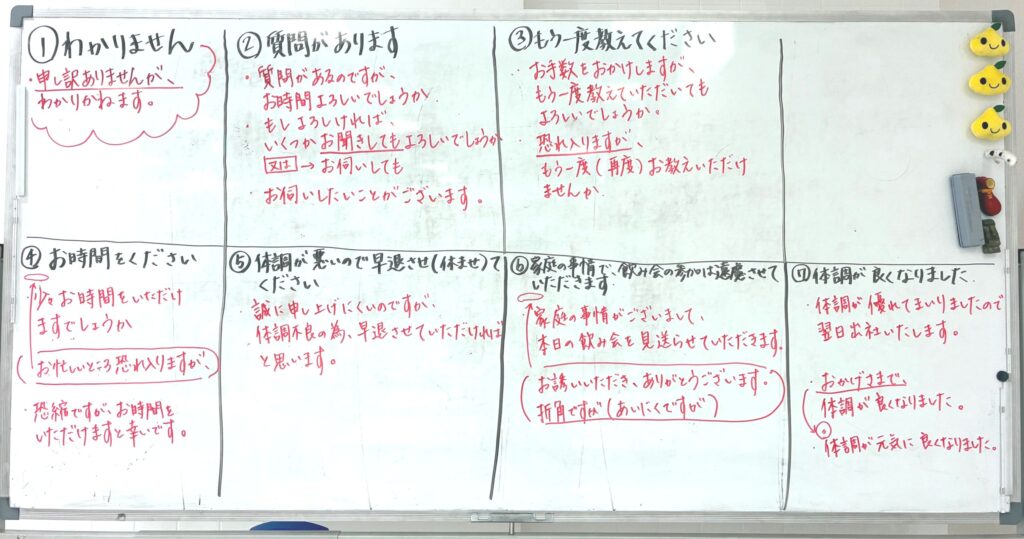 ① わかりません
・申し訳ありませんが、
わかりかねます。
② 質問があります
・質問があるのですが、
お時間よろしいでしょうか
・もしよろしければ、
いくつかお聞きしてもよろしいでしょうか
又は → お伺いしても
・お伺いしたいことがございます。
③ もう一度教えてください
・お手数をおかけしますが、
もう一度教えていただいても
よろしいでしょうか。
・恐れ入りますが、
もう一度(再度)お教えいただけ
ませんか
④ お時間をください
少々お時間をいただけ
ますでしょうか
(お忙しいところ恐れ入りますが、)
・恐縮ですが、お時間を
いただけますと幸いです。
⑤ 体調が悪いので早退させ(休ませ)て
ください
誠に申し上げにくいのですが、
体調不良の為、早退させていただければ
と思います。
⑥ 家庭の事情で、飲み会の参加は遠慮させて
いただきます
家庭の事情がございまして、
本日の飲み会を見送らせていただきます。
(お誘いいただき、ありがとうございます。
折角ですが(あいにくですが))
⑦ 体調が良くなりました
・体調が優れてまいりましたので
翌日出社いたします。
・おかげさまで、
体調が良くなりました。
。
・体調が元気に良くなりました。